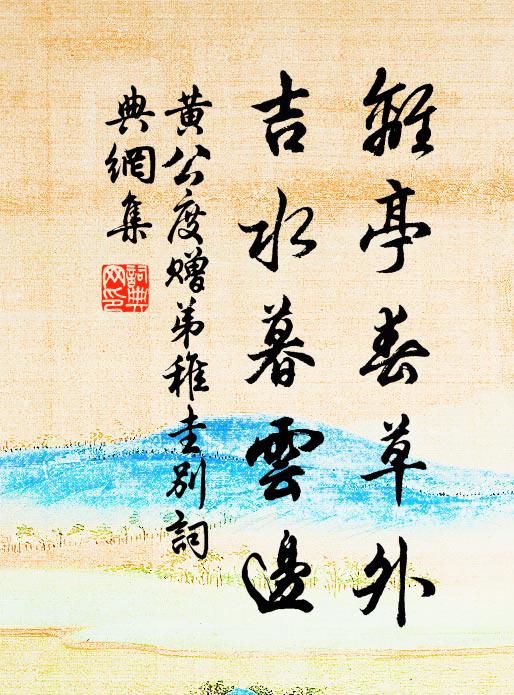 離亭春草外
吉水暮雲邊
黃公度贈弟稚圭別詞
典網集
詞典網印